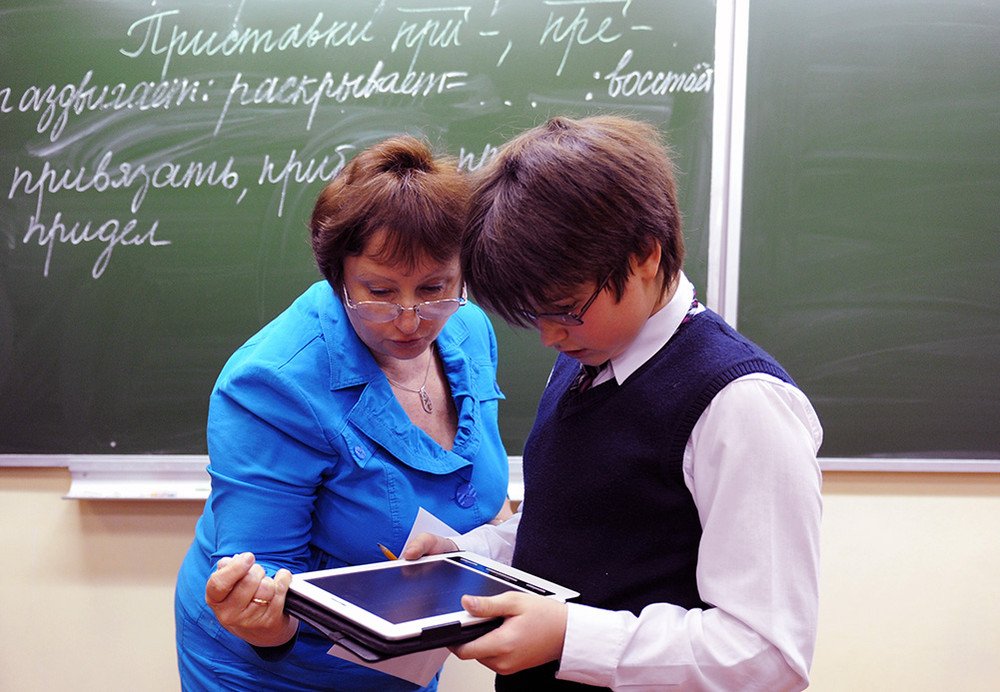 Приставки при-, пре-.
раздвигает: раскрывает= .... : восстай
привязать, при
придел